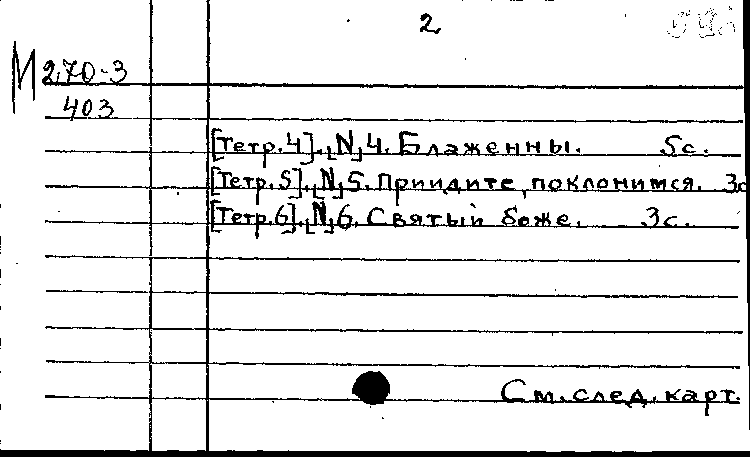 2
М 270-3
403
[Тетр. 4]. [N] 4. Блаженны. 5с.
[Тетр. 5]. [N] 5. Приидите, поклонимся. 3с
[Тетр. 6]. [N] 6. Святый боже. 3с.
См. след. карт.